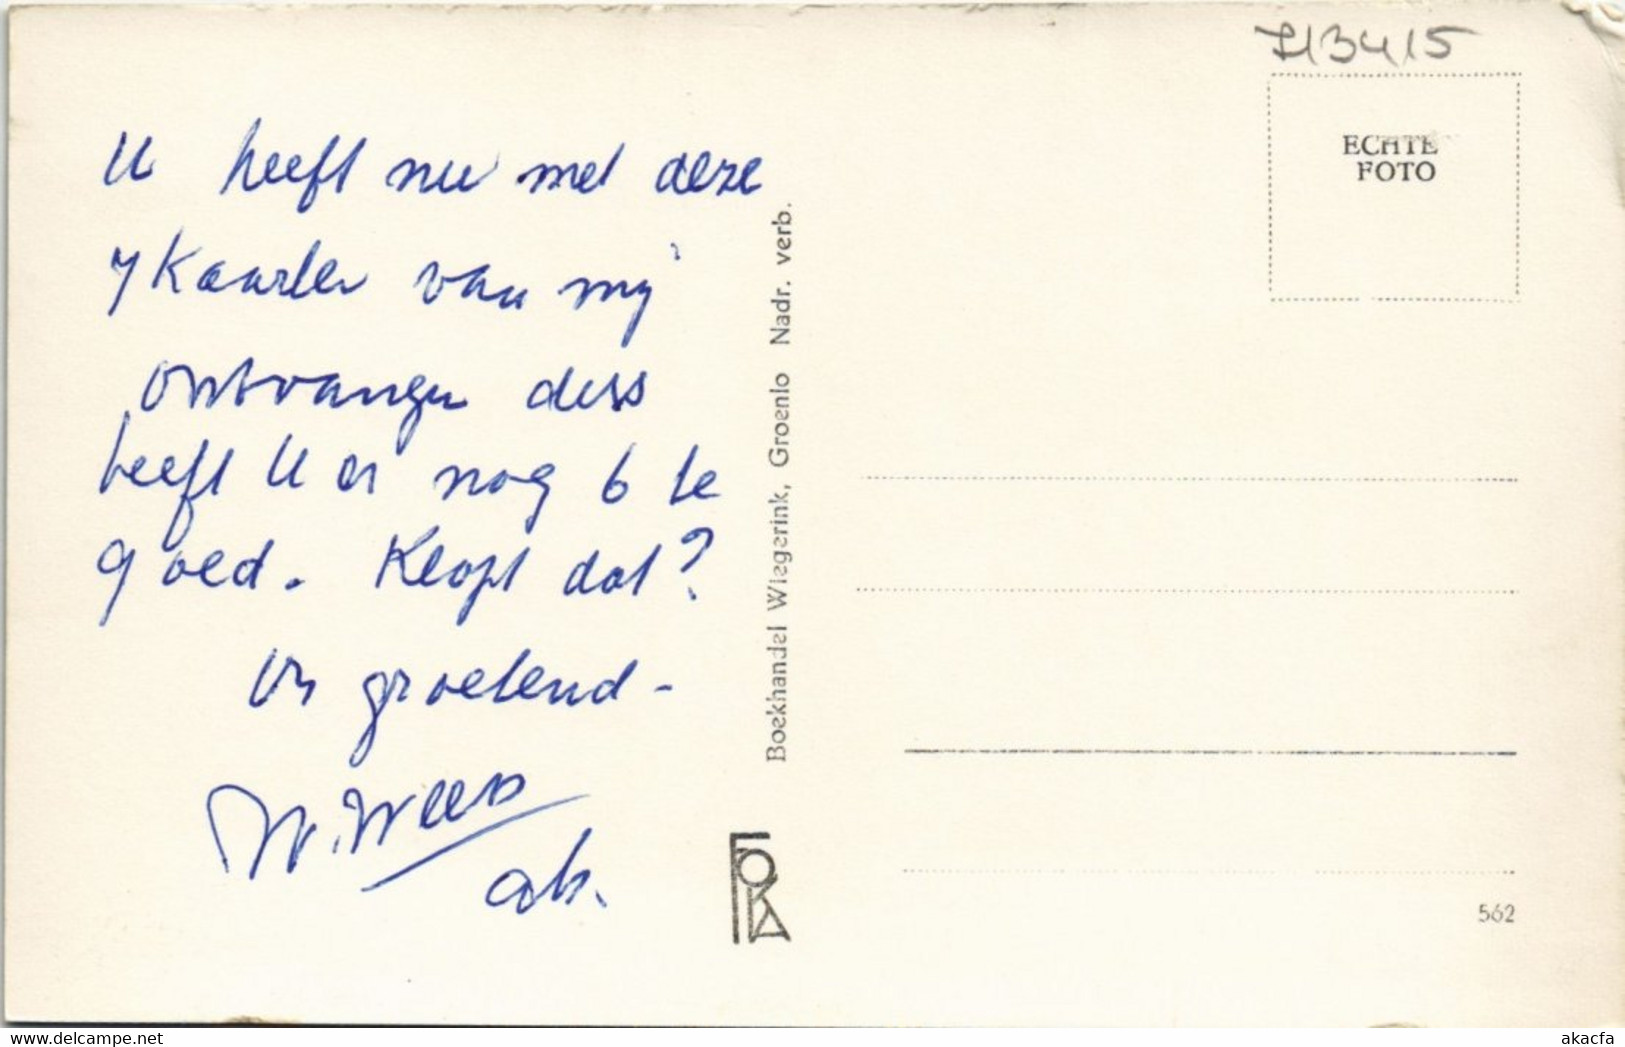 U heeft nu met deze
7 Kaarten van mij
ontvangen dus
heeft U er nog 6 te
goed. Klopt dat?
Vr groetend -
ab.
Boekhandel Wiegerink, Groenlo Nadr. verb.
FOKA
713415
ECHTE
FOTO
562
delcampe.net
akacfa